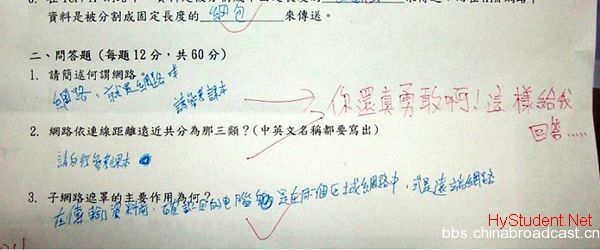 資料是被分割成固定長度的 網包 來傳送。
二、問答題（每題12分，共60分）
1. 請簡述何謂網路
網路、就是網路咩
請參考課本
你還真勇敢啊！這樣給我
回答.....
2. 網路依連線距離遠近共分為那三類？(中英文名稱都要寫出)
請自行參考課本
3. 子網路遮罩的主要作用為何？
在傳輸資料前，確認目的電腦 是在同個區域網路中，或是遠端網路
HyStudent.Net
bbs.chinabroadcast.cn